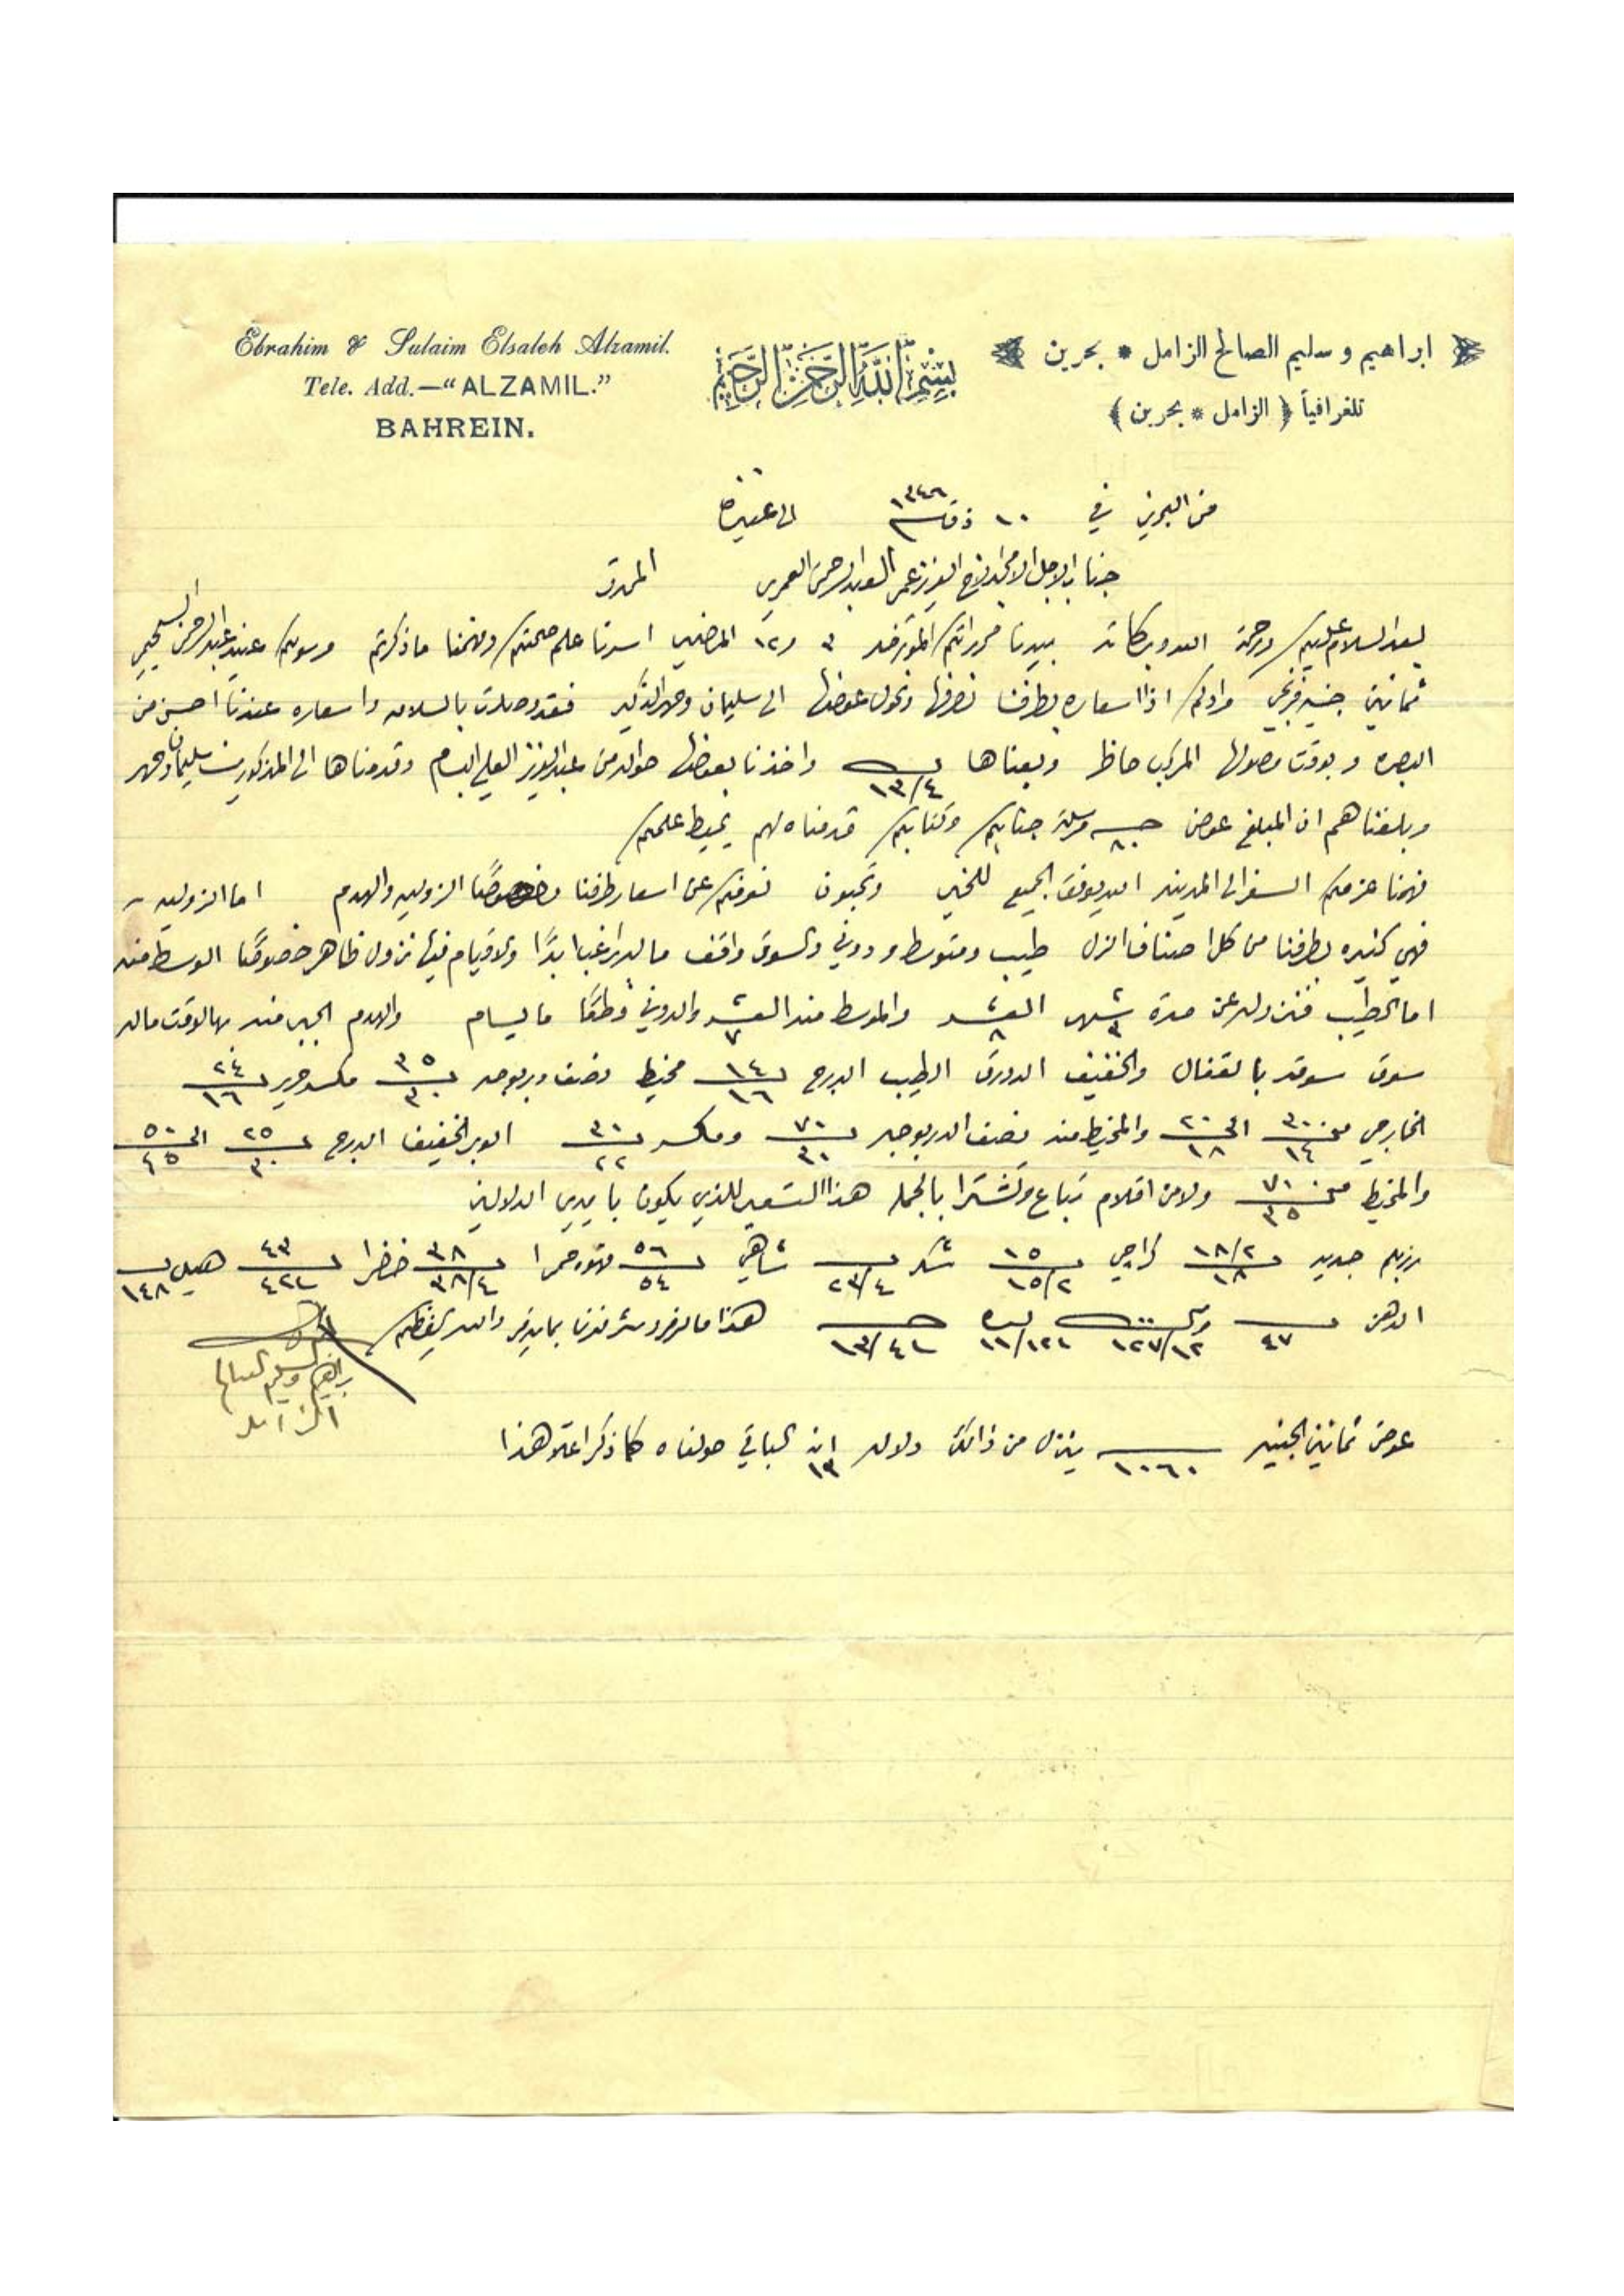 Ebrahim & Sulaim Elsaleh Alzamil.
Tele. Add.—“ALZAMIL.”
BAHREIN.
بسم الله الرحمن الرحيم
ابراهيم و سليم الصالح الزامل * بحرين
تلغرافياً ( الزامل * بحرين )
من البحرين في ١٠ ذق ١٣٤٦ الى عنيزه
جناب الاجل الامجد الاخ العزيز عمر العبدالرحمن العمري المحترم
بعد السلام عليكم ورحمة الله وبركاته بيدنا محرراتكم المؤرخه ٣ و١٢ الماضيين اسرنا علم صحتكم وفهمنا ما ذكرتم مرسولكم عبدالرحمن
ثمانين جنيه فرنجي مرادكم اذا اسعاره بطرفنا نصرفها ونحول عوضها الى سليمان وحمد الذكير فقد وصلت بالسلامه واسعاره عندنا احسن من
البصره وبوقت وصولها المركب حاظر وبعناها ١٣/٤ واخذنا بعوضها حواله من عبدالعزيز العلي البسام وقدمناها الى المذكورين سليمان وحمد
وبلغناهم ان المبلغ عوض ٨٠ جنيه مرسلة جنابكم وكتابكم قدمناه لهم يحيط علمكم
فهمنا عزمكم السفر الى المدينه الله يوفق الجميع للخير وتحبون نعرفكم عن اسعار طرفنا خصوصًا الزوليه والهدم اما الزوليه
فهي كثيره بطرفنا من كل اصناف الزل طيب ومتوسط ودوني والسوق واقف ماله راغب ابدًا ولا قيام فيها نزول ظاهر خصوصًا الوسط منه
اما الطيب فنزوله عن مدة ٣ شهر العشر ٨ والموسط منه العشر ٧ والدوني قطعًا ما يسام والهدم الجبر منه بهالوقت ماله
سوق سوقه بالقفال والخفيف الدورق الطيب الدرج ١٤ ١٦ مخيط نصف دربوجه ٣٥ ٣٠ مكسر حرير ٢٤ ١٦
الخارجي من ٣٠ ١٤ الى ٢٠ ١٨ والمخيط منه نصف الدربوجه ٧٠ ٣١ ومكسر ٣١ ٢٢ الوبر الخفيف الدرج ٢٥ ٣٠ الى ٥٠ ٤٥
والمخيط من ٧١ ٣٥ ولا من اقلام تباع وتشترا بالجمله هذا التسعير للذي يكون بايدي الدلالين
رزبلم جديد ١٨/٢ ١٨ كراچي ١٥ ١٥/٢ شكر ٢٣/٤ شاهي ٥٦ ٥٤ قهوه حمرا ٣٨ ٣٨/٤ خضرا ٤٣ هيل ١٤٨
الدهن ٤٧ ١٢٧/١٢ ليره ١٣/٤ هذا ما لزم ومنه شرفونا بما يلزم والله يحفظكم
ابراهيم وسليم الصالح
الزامل
عوض ثمانين الجنيه ١٠٦٠ ينزل من ذالك دلاله ١٣ انه الباقي حولناه كما ذكر اعلا هذا